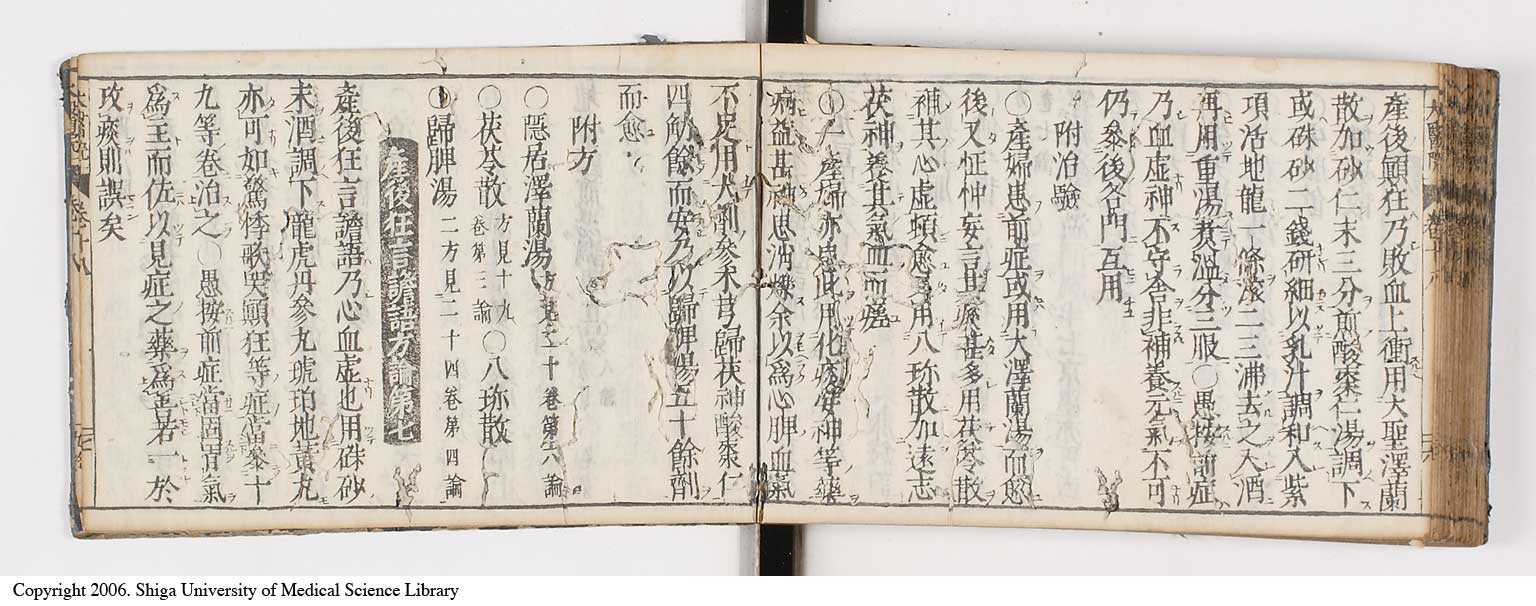 產後顚狂乃敗血上衝用大聖澤蘭
散加砂仁末三分煎酸棗仁湯調下
或硃砂二錢研細以乳汁調和入紫
項活地龍一條滾二三沸去之入酒
再用重湯煑溫分三服〇愚按前症
乃血虛神不守舍非補養元氣不可
仍參後各門互用
附治驗
〇產婦患前症或用大澤蘭湯而愈
後又怔忡妄言其痰甚多用茯苓散
補其心虛頓愈又用八珎散加遠志
茯神養其氣血而瘥
〇一產婦亦患此用化痰安神等藥
病益甚神思消爍余以爲心脾血氣
不足用大劑參朮芎歸茯神酸棗仁
四觔餘而安乃以歸脾湯五十餘劑
而愈
附方
〇隱居澤蘭湯 方見二十卷第六論
〇茯苓散 方見十九卷第三論 〇八珎散
〇歸脾湯 二方見二十四卷第四論
產後狂言譫語方論第七
產後狂言譫語乃心血虛也用硃砂
末酒調下龍虎丹參丸琥珀地黃丸
亦可如驚悸歌哭顚狂等症當參十
九等卷治之〇愚按前症當固胃氣
爲主而佐以見症之藥爲善若一於
攻痰則誤矣
Copyright 2006. Shiga University of Medical Science Library